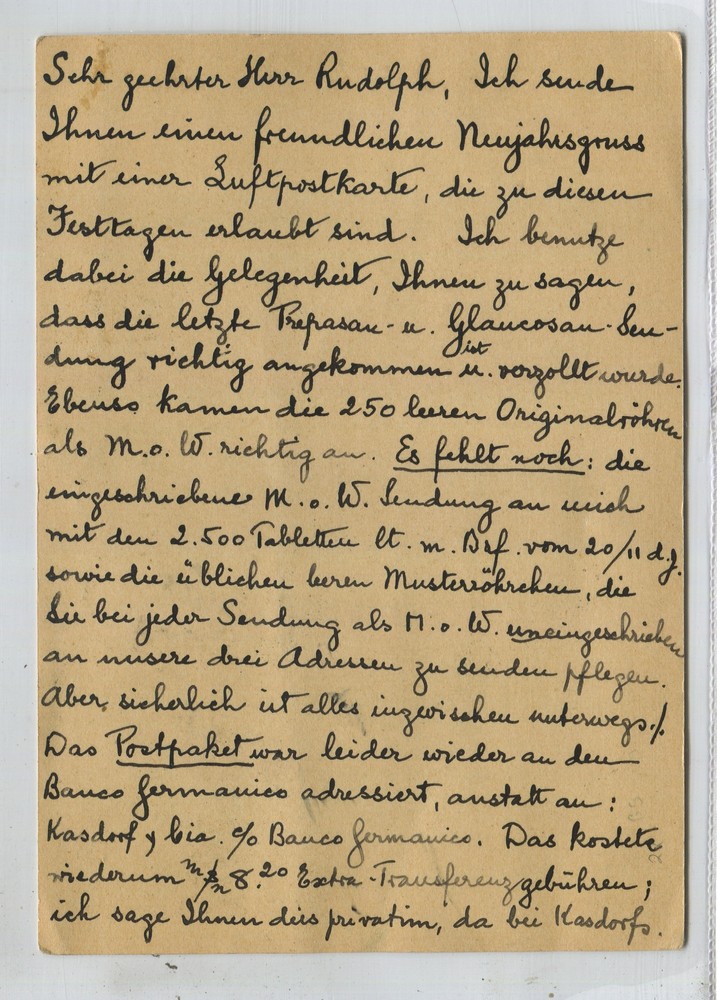 Sehr geehrter Herr Rudolph, Ich sende
Ihnen einen freundlichen Neujahrsgruss
mit einer Luftpostkarte, die zu diesen
Festtagen erlaubt sind. Ich benutze
dabei die Gelegenheit, Ihnen zu sagen,
dass die letzte Prefasan- u. Glaucosan-Sen-
dung richtig angekommen ist u. verzollt wurde.
Ebenso kamen die 250 leeren Originalröhren
als M.o.W. richtig an. Es fehlt noch: die
eingeschriebene M.o.W. Sendung an mich
mit den 2.500 Tabletten lt. m. Bsf. vom 20/11 d.J.
sowie die üblichen leeren Musterröhrchen, die
Sie bei jeder Sendung als M.o.W. uneingeschrieben
an unsere drei Adressen zu senden pflegen.
Aber sicherlich ist alles inzwischen unterwegs./.
Das Postpaket war leider wieder an den
Banco Germanico adressiert, anstatt an:
Kasdorf y Cia. c/o Banco Germanico. Das kostete
wiederum m$n 8.20 Extra-Transferenzgebühren;
ich sage Ihnen dies privatim, da bei Kasdorfs.